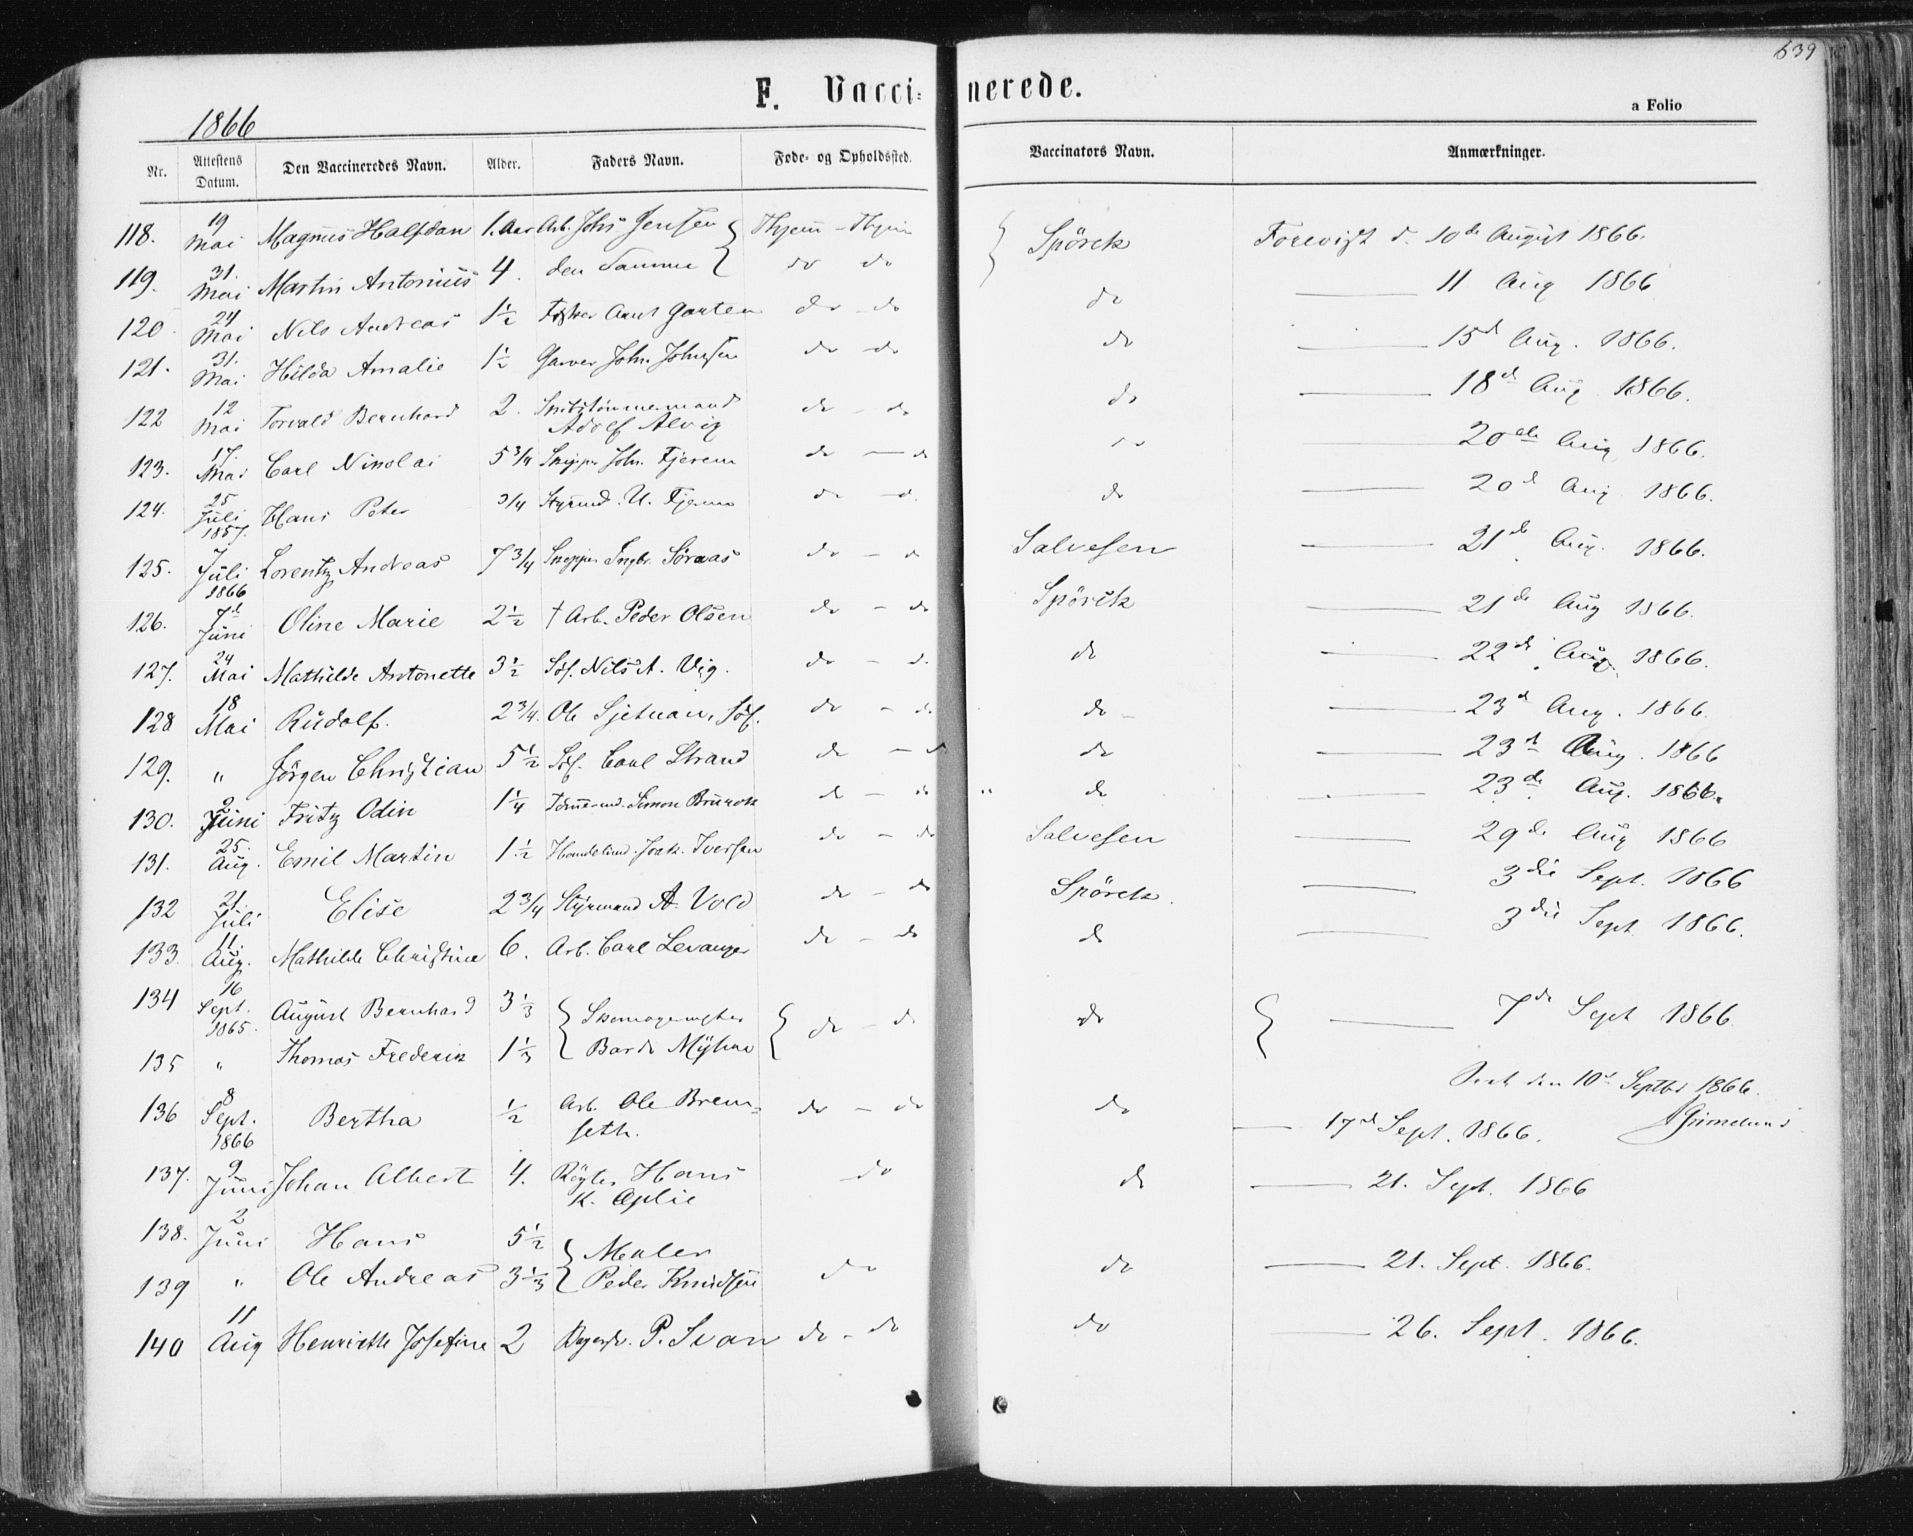 639
F. Vacci= nerede.
a Folio
1866
Nr. Attestens Datum. Den Vaccineredes Navn. Alder. Faders Navn. Føde- og Opholdssted. Vaccinators Navn. Anmærkninger.
118. 19 Mai Magnus Halfdan 1. Aar Arb. Johs Jensen Spörck Forevist d. 10de August 1866.
119. 31. Mai Martin Antonius 4. den Samme do do 11 Aug 1866
120. 24 Mai Nils Andreas 1½ Arnt Garten do - do do 15d Aug. 1866.
121. 31. Mai Hilda Amalie 1½ Garver John Johnsen do - do do 18d Aug 1866.
122 12 Mai Torvald Bernhard 2. Adolf Alvig do - do do
123. 17. Mai Carl Nikolai 5 3/4 Skipper Joh. Fjerem do - do 20de Aug 1866.
124. 25 Juli Hans Peter 3/4 Styrmd. U. Fjerem do - d. do 20d Aug 1866.
125. 1857. Juli Lorentz Andreas 7 3/4 Skipper Ingbr. Söraas do - do Salvesen 21de Aug. 1866.
126. 1866 7d Juni Oline Marie 2½ † Arb. Peder Olsen do - do Spörck 21de Aug 1866.
127. 24 Mai Mathilde Antonette 3½ Söf. Nils A. Vig. do - d. do 22de Aug 1866.
128 18 Mai Rudolf. 2 3/4. Ole Sjetnan, Söf. do - do do 23d Aug. 1866.
129. " Jörgen Christian 5½ Söf. Carl Strand do - d do 23d Aug. 1866
130. 2 Juni Fritz Odin 1¼ Simon do - do " do 23de Aug. 1866.
131. 25. Aug. Emil Martin 1.½ Handelsmd. Joak. Iversen do - do Salvesen 29de Aug 1866
132 21. Juli Elise 2 3/4 Styrmand A. Vold do - do Spörck. 3die Sept. 1866
133. 11. Aug. Mathilde Christine 6. Arb. Carl Levanger do - do do 3die Sept 1866.
134 16 Sept. 1865. August Bernhard 3⅓ Skomagermester do - do do 7de Sept 1866
135 " Thomas Frederik 1⅓ Bardo Myhre
10d Septbr 1866.
136 8 Sept. 1866 Bertha ½ Arb. Ole Brem= seth. do - do do 17d Sept. 1866.
137. 9 Juni Johan Albert 4. Hans K. Aplie do do 21. Sept. 1866
138. 2 Juni Hans 5½ Maler
139 " Ole Andreas 3⅓ Peder Knudsen do do 21. Sept. 1866.
140 11 Aug Henriette Josefine 2 P. Svan do - do do 26. Sept. 1866.